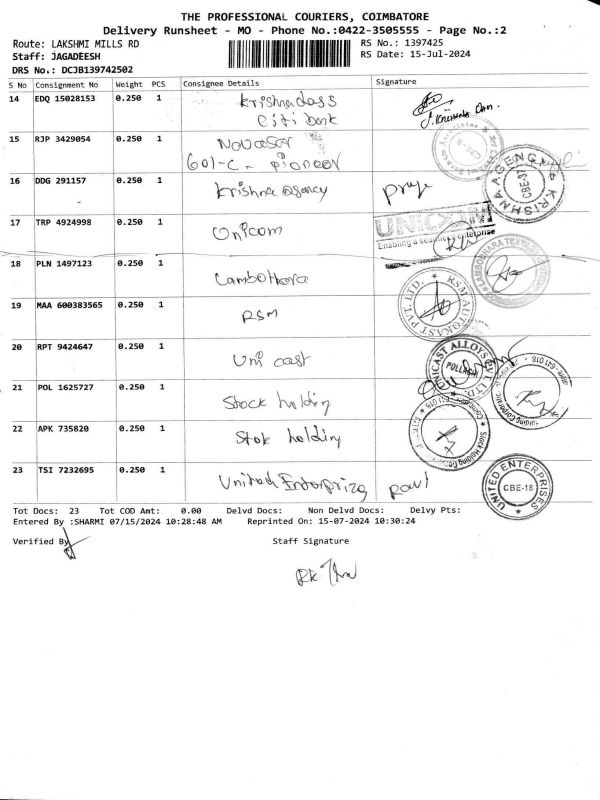 THE PROFESSIONAL COURIERS, COIMBATORE
Delivery Runsheet - MO - Phone No.:0422-3505555 - Page No.:2
Route: LAKSHMI MILLS RD
RS No.: 1397425
Staff: JAGADEESH
RS Date: 15-Jul-2024
DRS No.: DCJB139742502
S No Consignment No Weight PCS Consignee Details Signature
14 EDQ 15028153 0.250 1 Krishnadass
Citi bank
15 RJP 3429054 0.250 1 Novasor
601-C - Pioneer
16 DDG 291157 0.250 1 Krishna agency
KRISHNA AGENCY CBE-37
17 TRP 4924998 0.250 1 Unicom
UNICOM
Enabling a seamless enterprise
18 PLN 1497123 0.250 1 Lambothara
LAMBODHARA TEXTILES LIMITED
19 MAA 600383565 0.250 1 RSM
RSM AUTOKAST PVT. LTD.
20 RPT 9424647 0.250 1 Uni cast
UNICAST ALLOYS PVT LTD. POLLACHI
21 POL 1625727 0.250 1 Stock holding
22 APK 735820 0.250 1 Stok holding
Stock Holding Corporatio
23 TSI 7232695 0.250 1 United Enterprizg Paul
UNITED ENTERPRISES CBE-18
Tot Docs: 23 Tot COD Amt: 0.00 Delvd Docs: Non Delvd Docs: Delvy Pts:
Entered By :SHARMI 07/15/2024 10:28:48 AM Reprinted On: 15-07-2024 10:30:24
Verified By
Staff Signature